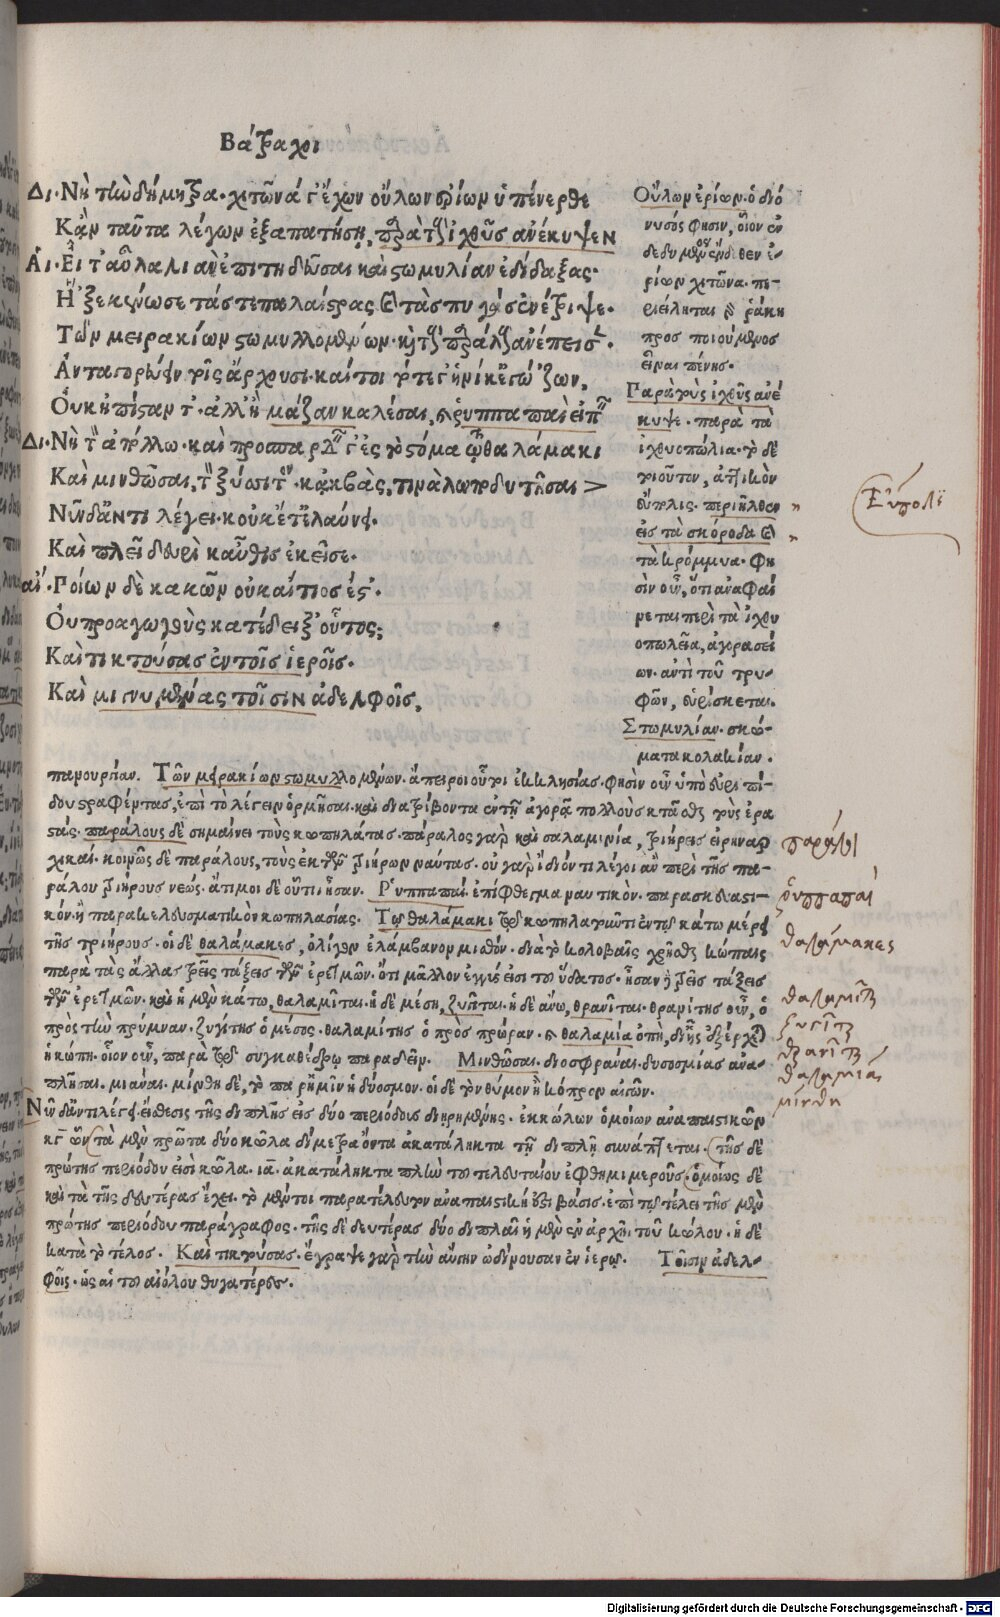 Βάτραχοι
Δι. Νὴ τὴν δήμητρα. χιτῶνά γ' ἔχων οὔλων ἐρίων ὑπένερθε
Κἂν ταῦτα λέγων ἐξαπατήσῃ, παρὰ τοὺς ἰχθῦς ἀνέκυψεν
Αἰ. Εἶτ' αὖ λαλιὰν ἐπιτηδεῦσαι καὶ στωμυλίαν ἐδίδαξας.
Ἣ 'ξεκένωσε τάς τε παλαίστρας καὶ τὰς πυγὰς ἐνέτριψε.
Τῶν μειρακίων στωμυλλομένων. καὶ τοὺς παράλους ἀνέπεισε.
Ἀνταγορεύειν τοῖς ἄρχουσι. καίτοι τότε γ' ἡνίκ' ἐγὼ 'ζων,
Οὐκ ἠπίσταντ'. ἀλλ' ἢ μάζαν καλέσαι, καὶ ῥυππαπαὶ εἰπεῖν
Δι. Νὴ τὸν ἀπόλλω. καὶ προσπαρδεῖν γ' ἐς τὸ στόμα τῷ θαλάμακι
Καὶ μινθῶσαι, τὸν ξύσσιτον. κἀκβὰς, τινὰ λωποδυτῆσαι >
Νῦν δ' ἀντιλέγει. κοὐκέτ' ἐλαύνει.
Καὶ πλεῖ δευρὶ καὖθις ἐκεῖσε.
αἰ. Ποίων δὲ κακῶν οὐκ αἴτιος ἐς'.
Οὐ προαγωγοὺς κατέδειξ' οὗτος;
Καὶ τικτούσας ἐν τοῖς ἱεροῖς.
Καὶ μιγνυμένας τοῖσιν ἀδελφοῖς,
Οὔλων ἐρίων. ὁ διό
νυσός φησιν, οἷον ἐν
δεδυμένους ἔνδοθεν ἐ-
ρίων χιτῶνα. πε-
ριείληται δὲ ῥάκη
προσποιούμενος
εἶναι πένης.
Παρὰ τοὺς ἰχθῦς ἀνέ
κυψε. παρὰ τὰ
ἰχθυοπώλια. τὸ δὲ
τοιοῦτον, ἀττικὸν
εὔπολις. περιῆλθον
εἰς τὰ σκόροδα καὶ
τὰ κρόμμυα. φη
σὶν οὖν, ὅτι ἀναφαί
νεται περὶ τὰ ἰχθυ
οπωλεῖα, ἀγορασεί
ων. ἀντὶ τοῦ τρυ-
φῶν, εὑρίσκεται.
Στωμυλίαν. σκώ-
ματα κολακίαν.
πανουργίαν. Τῶν μειρακίων στωμυλλομένων. ἄπειροι οὗτοι ἐκκλησίας. φησὶν οὖν ὑπὸ εὐρι πί-
δου στραφέντας, ἐπὶ τὸ λέγειν ὁρμῆσαι. καὶ διατρίβοντα ἐν τῇ ἀγορᾷ πολλοὺς κτᾶσθαι τοὺς ἐρα
στάς. παράλους δὲ σημαίνει τοὺς κωπηλάτας. πάραλος γὰρ καὶ σαλαμινία, τριήρεις εἰρηναρ
χικαί. κοινῶς δὲ παράλους, τοὺς ἐκ τῶν τριήρων ναύτας. οὐ γὰρ ἴδιόν τι λέγοι ἂν περὶ τῆς πα-
ράλου τριήρους νεώς. ἄτιμοι δὲ οὗτοι ἦσαν. Ῥυππαπαί. ἐπίφθεγμα ναυτικὸν. παρασκευαστι-
κὸν. ἢ παρακελευσματικὸν κωπηλασίας. Τῷ θαλάμακι τῷ κωπηλατοῦντι ἐν τῷ κάτω μέρει
τῆς τριήρους. οἱ δὲ θαλάμακες, ὀλίγον ἐλάμβανον μισθόν. διὰ τὸ κολοβαῖς χρῆσθαι κώπαις
παρὰ τὰς ἄλλας τρεῖς τάξεις τῶν ἐρετμῶν. ὅτι μᾶλλον ἐγγύς εἰσι τοῦ ὕδατος. ἦσαν δὲ τρεῖς τάξεις
τῶν ἐρετμῶν. καὶ ἡ μὲν κάτω, θαλαμῖται. ἡ δὲ μέση, ζυγῖται. ἡ δὲ ἄνω, θρανῖται. θρανίτης οὖν, ὁ
πρὸς τὴν πρύμναν. ζυγίτης ὁ μέσος. θαλαμίτης ὁ πρὸς πρώραν. καὶ θαλαμία ὀπὴ, δι' ἧς ἐξέρχεται
ἡ κώπη. οἷον οὖν, παρὰ τῷ συγκαθέδρῳ παραδεῖν. Μινθῶσαι. διοσφρᾶναι. δυσοσμίας ἀνα-
πλῆσαι. μιᾶναι. μίνθη δὲ, τὸ παρ' ἡμῖν ἡδύοσμον. οἱ δὲ τὸν θύμον ἢ κόπρον αἰγῶν.
Νῦν δ' ἀντιλέγει. εἴσθεσις τῆς διπλῆς εἰς δύο περιόδους διῃρημένης. ἐκ κώλων ὁμοίων ἀναπαιστικῶν
κγ ὧν τὰ μὲν πρῶτα δύο κῶλα δίμετρα ὄντα ἀκατάληκτα τῇ διπλῇ συνάπτεται. τῆς δὲ
πρώτης περιόδου εἰσὶ κῶλα. ια. ἀκατάληκτα πλὴν τοῦ τελευταίου ἑφθημιμεροῦς. ὁμοίως δὲ
καὶ τὰ τῆς δευτέρας ἔχει. τὸ μέντοι παρατέλευτον ἀναπαιστική ἐστι βάσις. ἐπὶ τῷ τέλει τῆς μὲν
πρώτης περιόδου παράγραφος. τῆς δὲ δευτέρας δύο διπλαῖ ἡ μὲν ἐν ἀρχῇ τοῦ κώλου. ἡ δὲ
κατὰ τὸ τέλος. Καὶ τικτούσας. ἔγραψε γὰρ τὴν αὔγην ὠδίνουσαν ἐν ἱερῷ. Τοῖσιν ἀδελ-
φοῖς. ὡς αἱ τοῦ αἰόλου θυγατέρες.
Εὔπολι
παράλοι
ῥυππαπαί
θαλάμακες
θαλαμῖται
ζυγῖται
θρανῖται
θαλαμιά
μίνθη
Digitalisierung gefördert durch die Deutsche Forschungsgemeinschaft - DFG